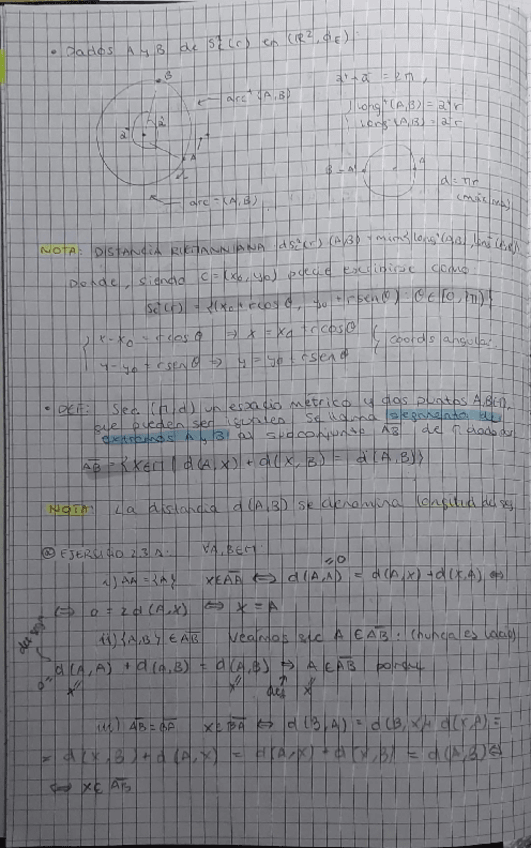 • Dados A y B de S¹c(r) en (R², dE)
B
arc⁺(A,B)
A
arc⁻(A,B)
a⁺+a⁻ = 2π,
long⁺(A,B) = a⁺r
long⁻(A,B) = a⁻r
B A
d = πr
NOTA: DISTANCIA RIEMANNIANA dS¹c(r) (A,B) = min{long⁺(A,B), long⁻(A,B)}
Donde, siendo C=(x₀,y₀) puede escribirse como
S¹c(r) = {(x₀+rcosθ, y₀+rsenθ) : θ∈[0,2π)}
x-x₀ = rcosθ ⇒ x = x₀+rcosθ
y-y₀ = rsenθ ⇒ y = y₀+rsenθ
coords angular
• DEF: Sea (M,d) un espacio métrico y dos puntos A,B∈M,
que pueden ser iguales. Se llama segmento de
extremos A y B al subconjunto AB̅ de M dado
A̅B̅ = {X∈M | d(A,X) + d(X,B) = d(A,B)}
NOTA: La distancia d(A,B) se denomina longitud del
EJERCICIO 2.3.1. ∀A,B∈M
i) A̅A̅ = {A} X∈A̅A̅ ⇔ d(A,A) = d(A,X)+d(X,A) ⇔
=0
⇔ 0 = 2d(A,X) ⇔ X = A
ii) {A,B} ∈ A̅B̅ Veamos que A∈A̅B̅. (nunca es vacío)
d(A,A) + d(A,B) = d(A,B) ⇒ A∈A̅B̅ porque
0 X X def X
iii) A̅B̅ = B̅A̅ X∈B̅A̅ ⇔ d(B,A) = d(B,X)+d(X,A) =
= d(X,B) + d(A,X) = d(A,X) + d(X,B) = d(A,B) ⇔
⇔ X∈A̅B̅